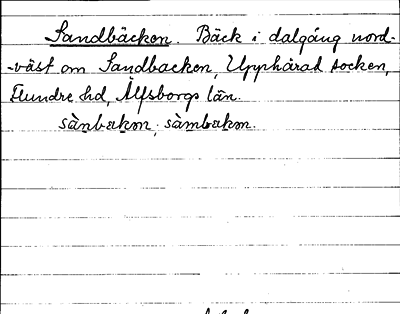 Sandbäcken. Bäck i dalgång nord-
-väst om Sandbacken, Upphärad socken,
Flundre hd, Älfsborgs län.
sànbækɷn, sàmbækɷn.